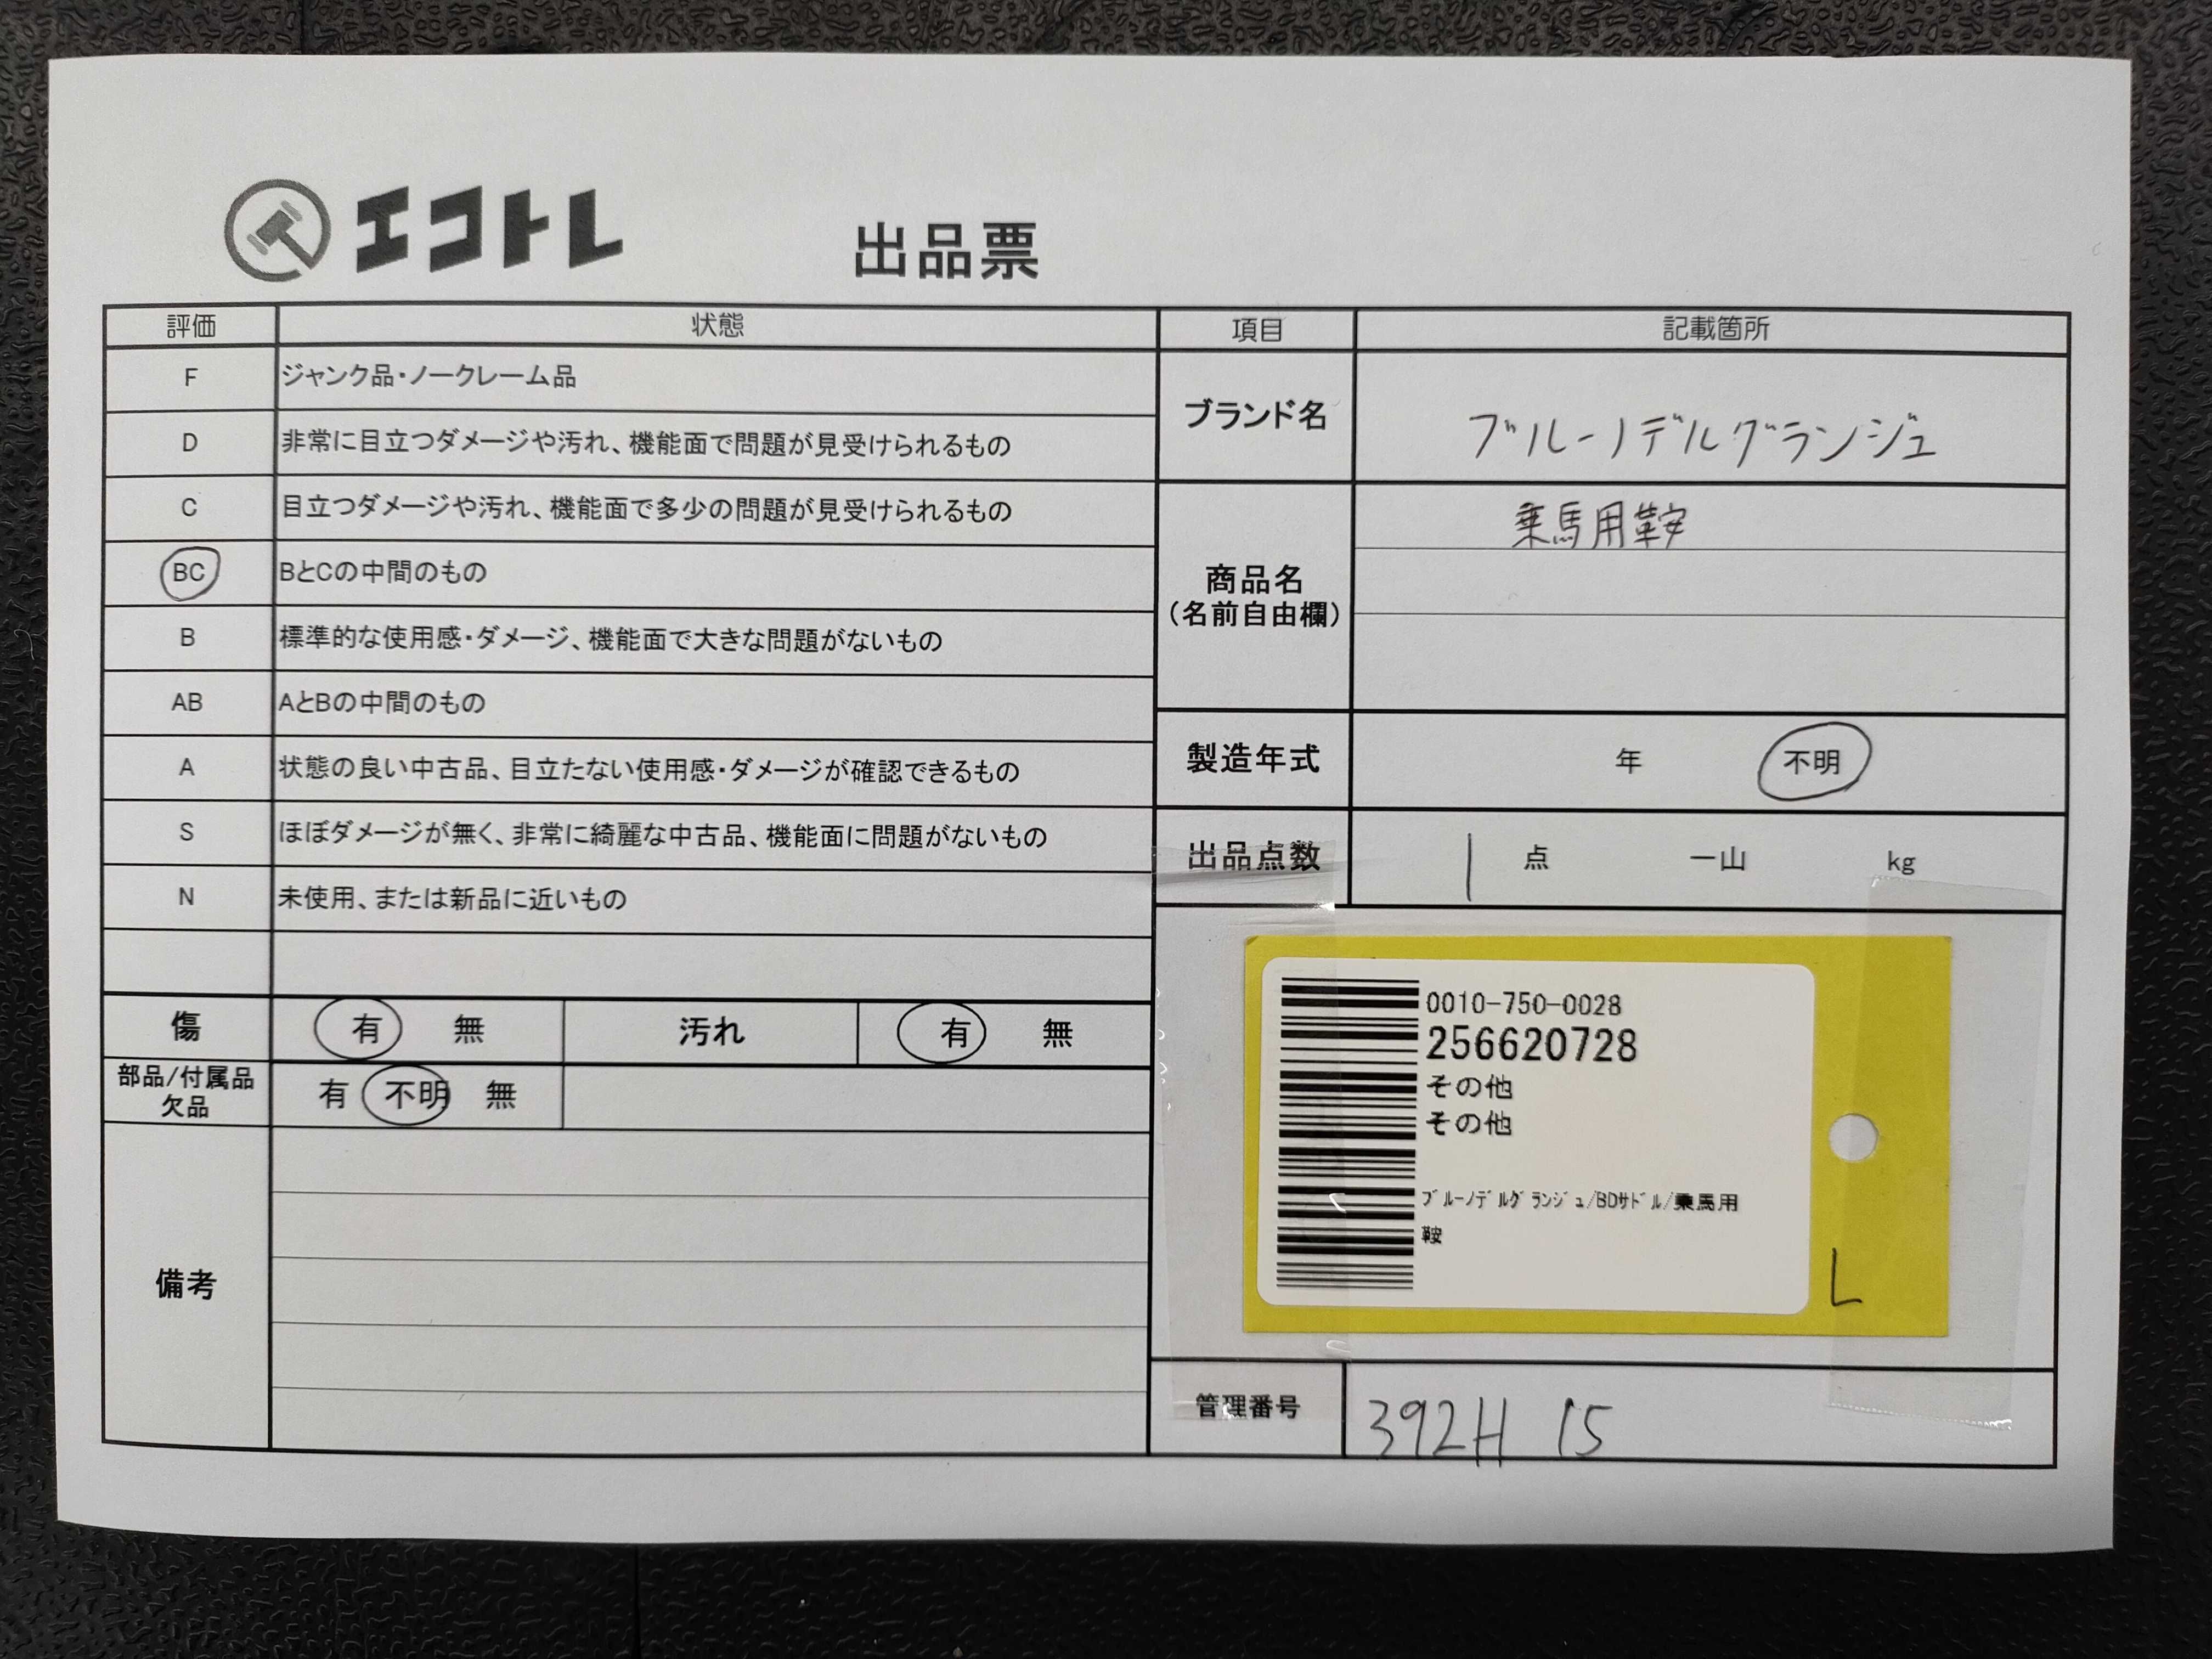 エコトレ
出品票
評価 状態
F ジャンク品・ノークレーム品
D 非常に目立つダメージや汚れ、機能面で問題が見受けられるもの
C 目立つダメージや汚れ、機能面で多少の問題が見受けられるもの
BC BとCの中間のもの
B 標準的な使用感・ダメージ、機能面で大きな問題がないもの
AB AとBの中間のもの
A 状態の良い中古品、目立たない使用感・ダメージが確認できるもの
S ほぼダメージが無く、非常に綺麗な中古品、機能面に問題がないもの
N 未使用、または新品に近いもの
傷 有 無 汚れ 有 無
部品/付属品
欠品
有 不明 無
備考
項目 記載箇所
ブランド名 ブルーノデルグランジュ
商品名
(名前自由欄)
乗馬用鞍
製造年式 年 不明
出品点数 1 点 一山 kg
0010-750-0028
256620728
その他
その他
ﾌﾞﾙｰﾉﾃﾞﾙｸﾞﾗﾝｼﾞｭ/BDｻﾄﾞﾙ/乗馬用
鞍
L
管理番号 392H 15